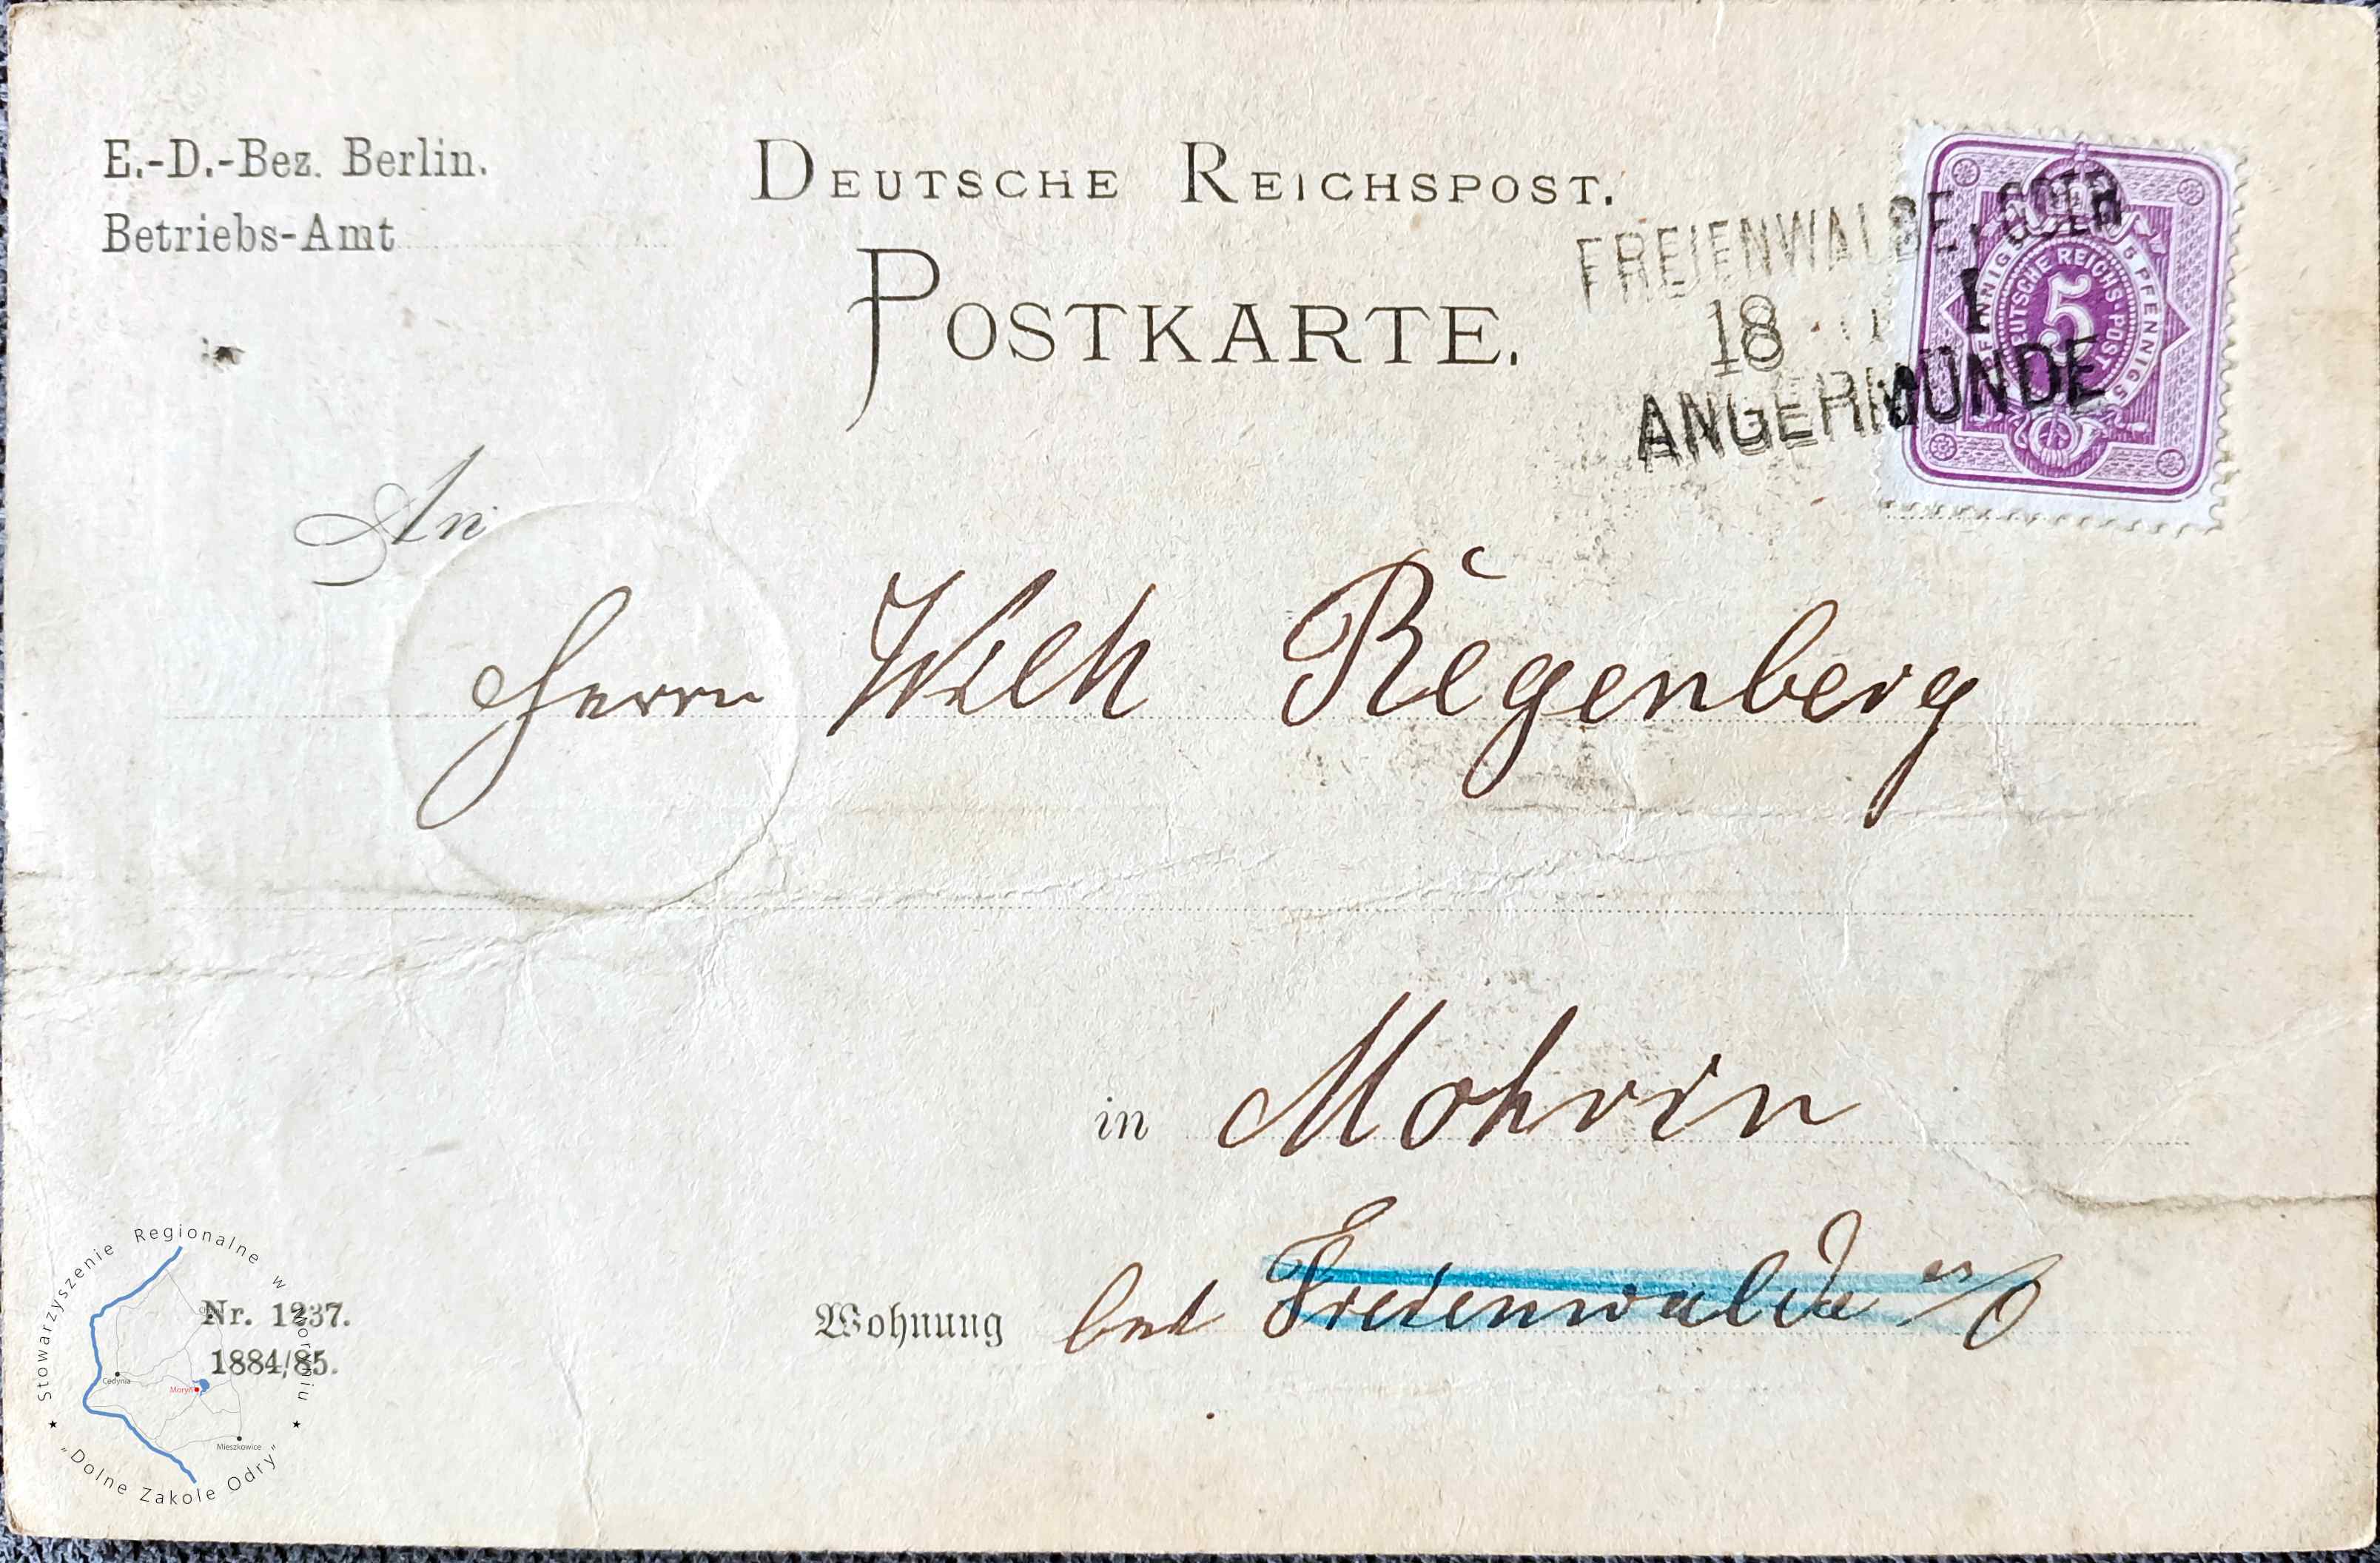 E.-D.-Bez. Berlin.
Betriebs-Amt
DEUTSCHE REICHSPOST.
POSTKARTE.
FREIENWALDE, ODER
18
I
ANGERMÜNDE
5 PFENNIG 5
DEUTSCHE REICHS-POST
5
An
Herrn Wilh Regenberg
in Mohrin
Wohnung bei Freienwalde a/O
Nr. 1237.
1884/85.
Stowarzyszenie Regionalne w Moryniu
"Dolne Zakole Odry"
Cedynia
Moryń
Mieszkowice